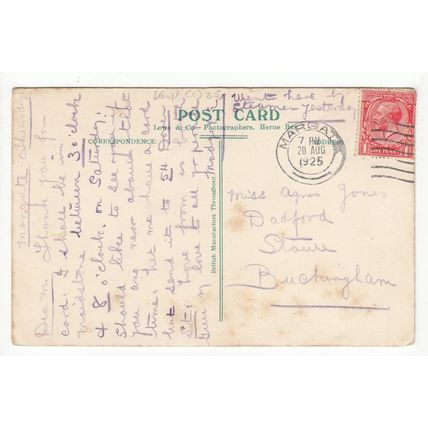 Kent, C1925
went here by
Steamer yesterday
POST CARD
Love & Co— Photographers, Herne Bay
CORRESPONDENCE
ADDRESS
British Manufacture Throughout
MARGATE
7 PM
20 AUG
1925
Margate Thursday
Dear M. Thank you for
card. I shall be in
maidstone between 3 o'clock
& 8 o'clock on Saturday.
Should like to see you if
you are near about at that
time. Let me have a card
but send it to 54 Dover
St. home from is
Give my love to all
Miss Agnes Jones
Dadford
Stowe
Buckingham